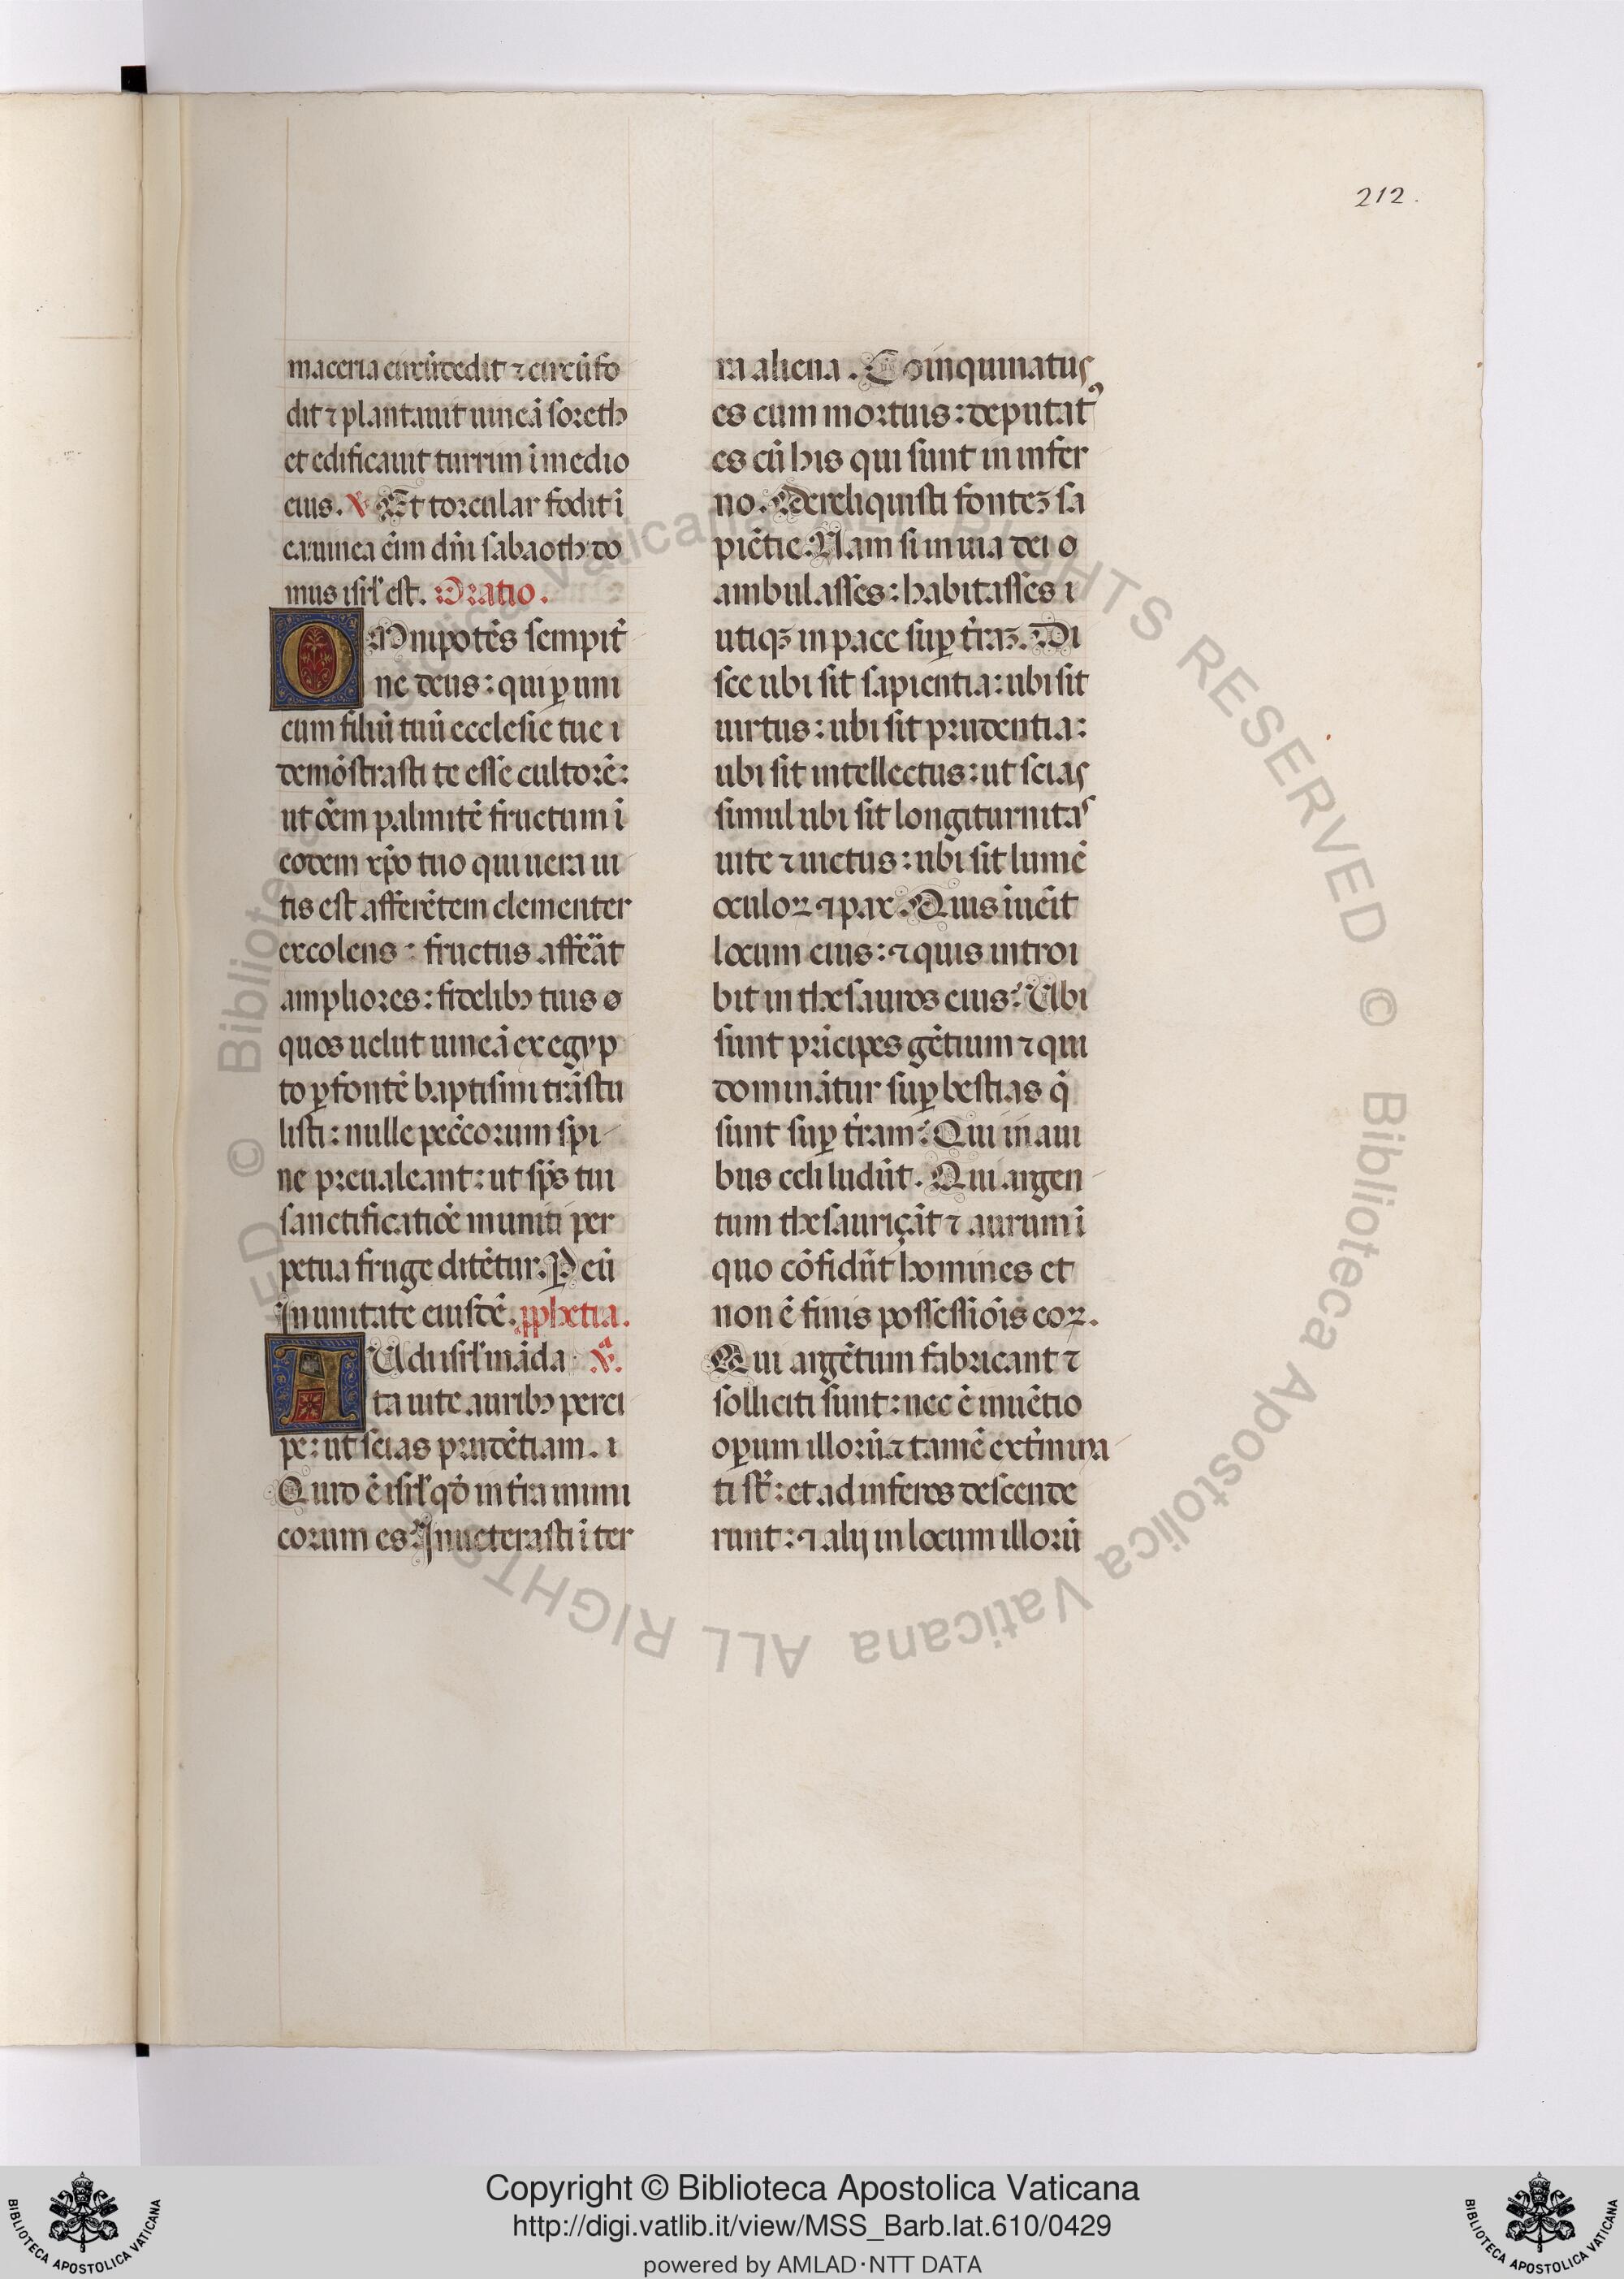 212.
maceria circũdedit ⁊ circũfo
dit ⁊ plantauit uineã soreth
et edificauit turrim ĩ medio
eius. ℣ Et torcular fodit ĩ
ea: uinea eñim dñi sabaoth do
mus isrl' est. Oratio.
OMnipotẽs sempit̾
ne deus: qui ꝑ uni
cum filiũ tuũ ecclesie tue ı
demõstrasti te esse cultorẽ:
ut oẽm palmitẽ fructum ĩ
eodem xp̃o tuo qui uera ui
tis est afferẽtem clementer
excolens: fructus afferãt
ampliores: fidelibꝫ tuis ø
quos uelut uineã ex egyp
to ꝑ fontẽ baptismi trãstu
listi: nulle pecc̃orum spi
ne preualeant: ut sp̃s tui
sanctificatiõe muniti per
petua fruge ditẽtur. P eũ
In unitate eiusdẽ. ꝓphetia.
AUdi isrl' mãda ℣ᵃ.
ta uite auribꝫ perci
pe: ut scias prudẽtiam. ı
Quid ẽ isrl' qđ in t̾ra inimi
corum es: Inueterasti ĩ ter
ra aliena. Coinquinatus
es cum mortuis: deputatꝰ
es cũ his qui sunt in infer
no. Dereliquisti fontẽꝫ sa
piẽtie. Nam si in uia dei o
ambulasses: habitasses ı
utiqꝫ in pace suꝑ t̾raꝫ. Di
sce ubi sit sapientia: ubi sit
uirtus: ubi sit prudentia:
ubi sit intellectus: ut scias
simul ubi sit longiturnitas
uite ⁊ uictus: ubi sit lumẽ
oculoꝝ ⁊ pax. Quis ĩuẽit
locum eius: ⁊ quis introi
bit in thesauros eius: Ubi
sunt prĩcipes gẽtium ⁊ qui
dominãtur suꝑ bestias q̃
sunt suꝑ t̾ram: Qui in aui
bus celi ludũt. Qui argen
tum thesauriçãt ⁊ aurum ĩ
quo cõfidũt homines et
non ẽ finis possessiõis eoꝝ.
Qui argẽtum fabricant ⁊
solliciti sunt: nec ẽ inuẽtio
oꝑum illorũ: ⁊ tamẽ ext̾mina
ti st̃: et ad inferos descende
runt: ⁊ alij in locum illorũ
© Biblioteca Apostolica Vaticana ALL RIGHTS RESERVED © Biblioteca Apostolica Vaticana ALL RIGHTS
Copyright © Biblioteca Apostolica Vaticana
http://digi.vatlib.it/view/MSS_Barb.lat.610/0429
powered by AMLAD·NTT DATA
BIBLIOTECA APOSTOLICA VATICANA
BIBLIOTECA APOSTOLICA VATICANA